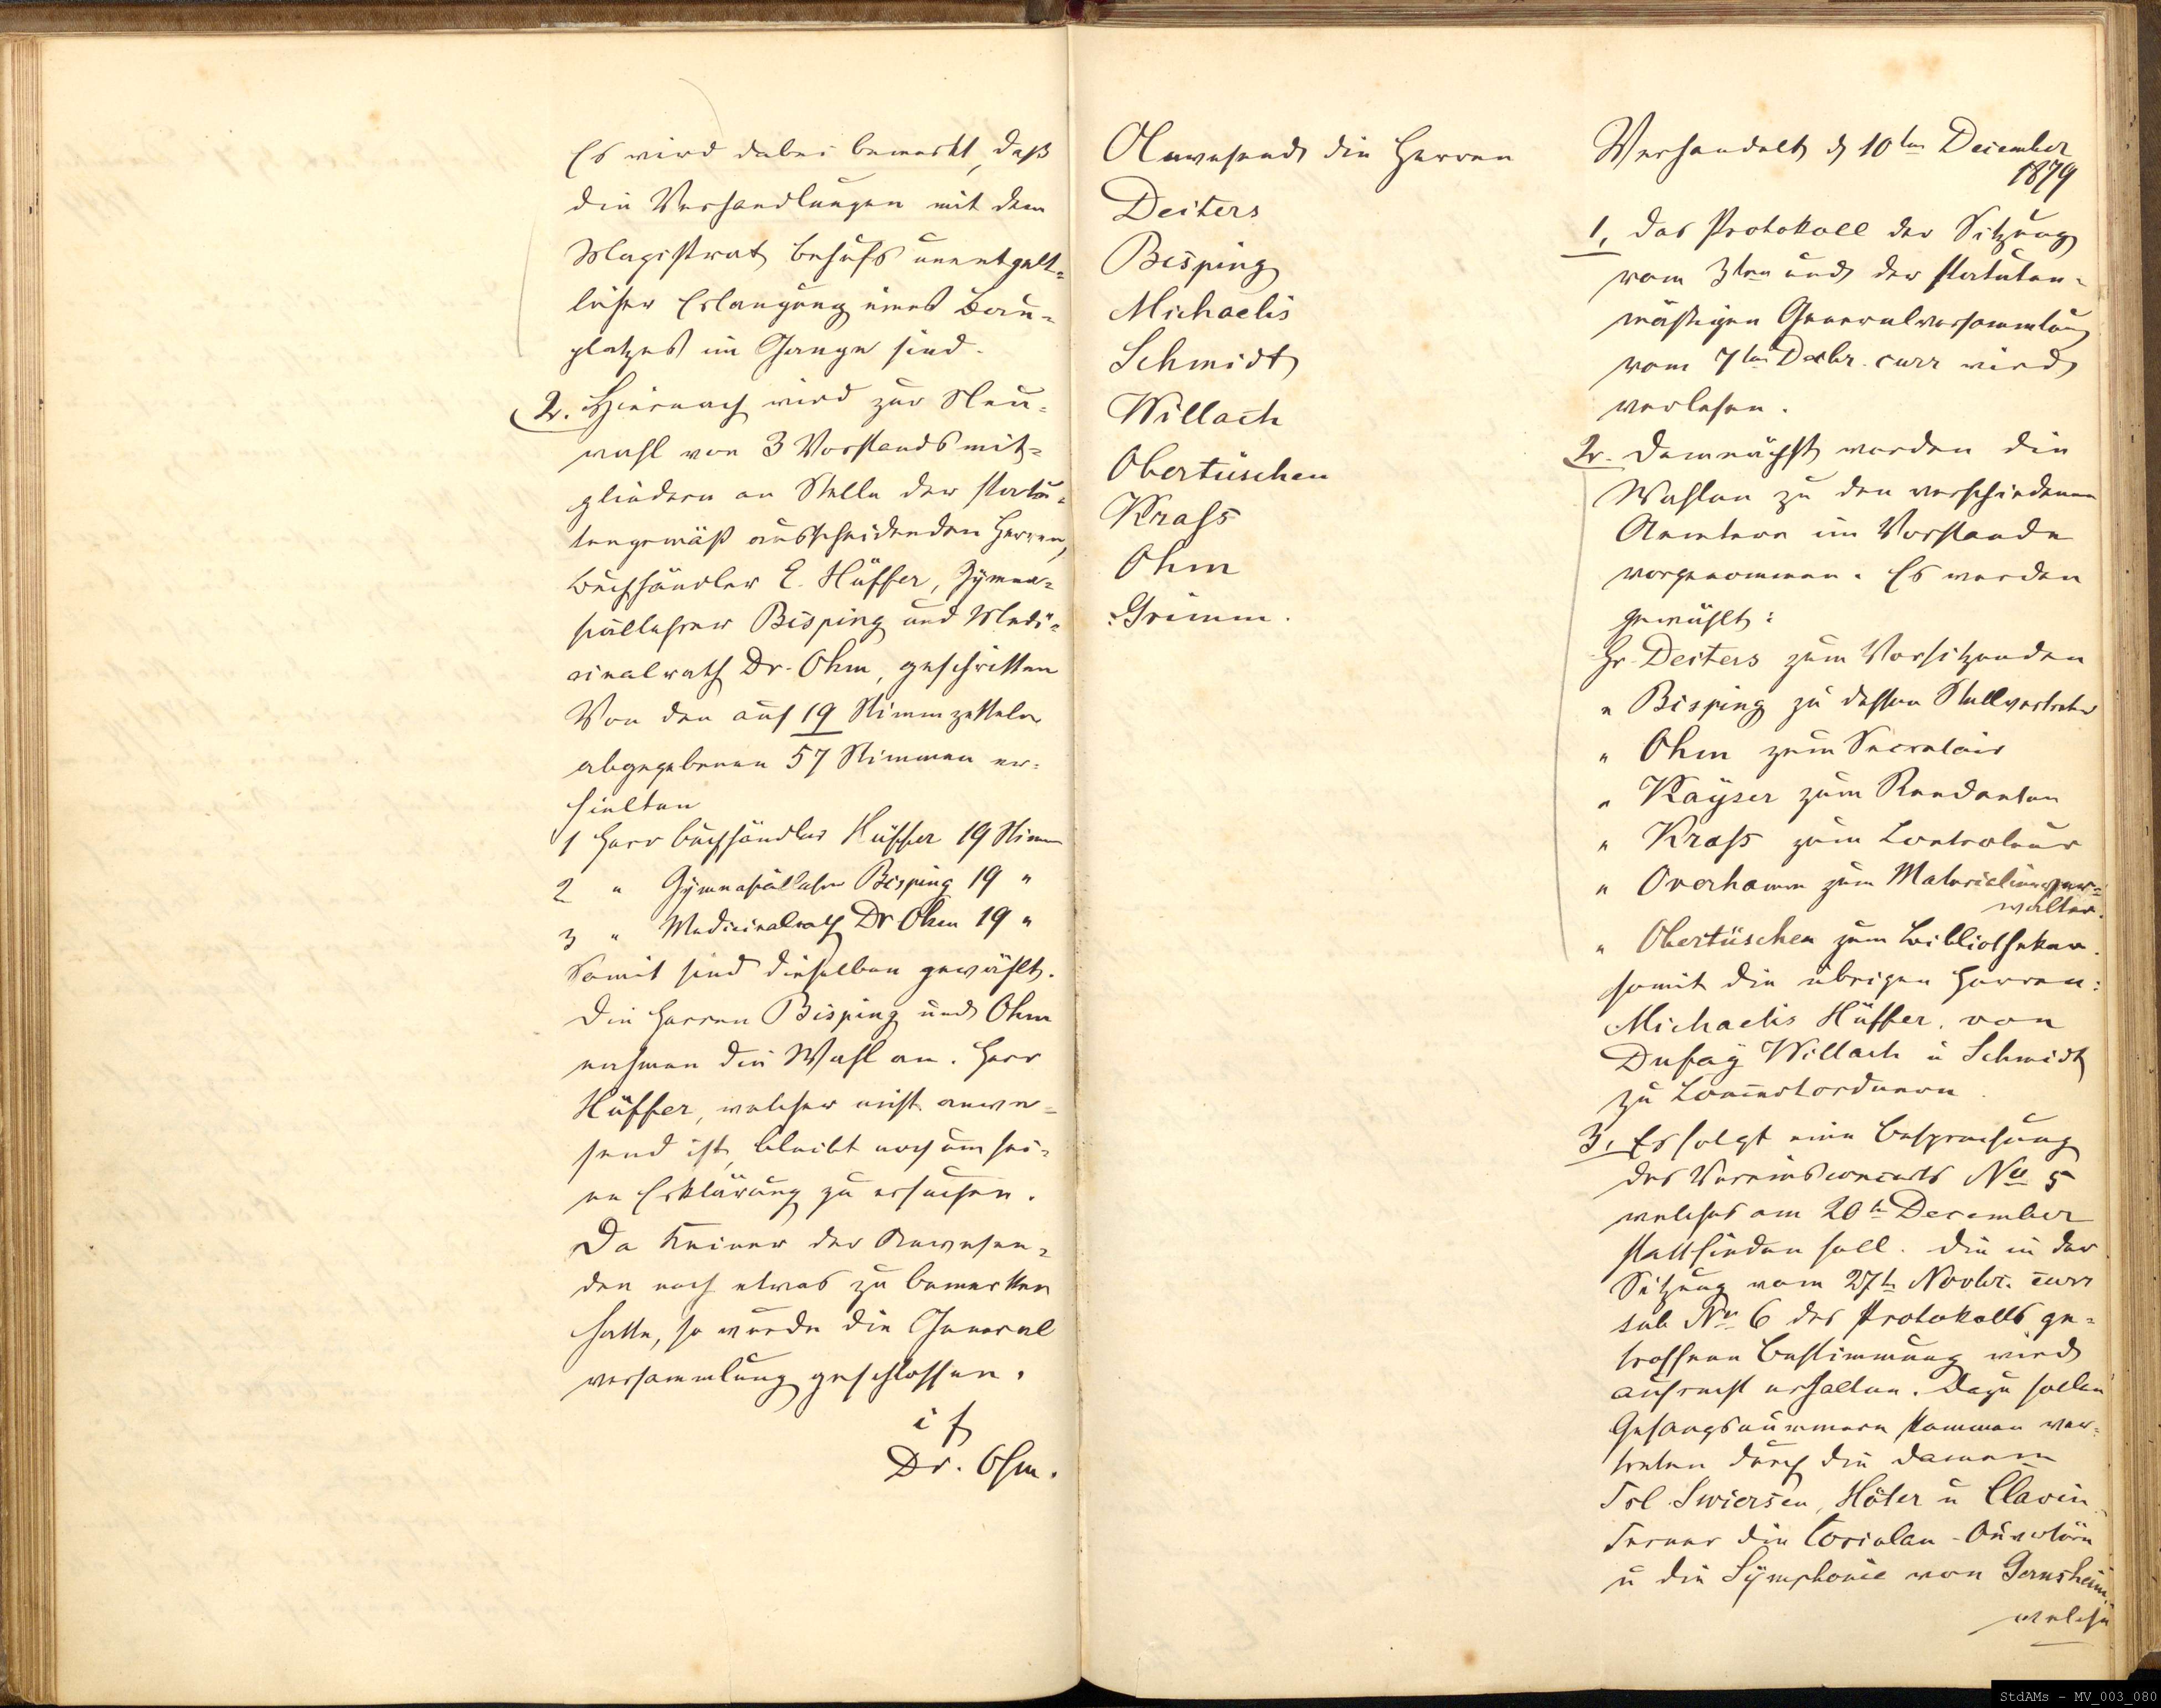 Es wird dabei bemerkt, daß
die Verhandlungen mit dem
Magistrat behufs unentgelt=
licher Erlangung eines Bau=
platzes im Gange sind.
2. Hiernach wird zur Neu=
wahl von 3 Vorstandsmit=
gliedern an Stelle der statu=
tengemäß ausscheidenden Herren,
Buchhändler E. Hüffer, Gymna=
siallehrer Bisping und Medi=
cinalrath Dr. Ohm, geschritten
Von den auf 19 Stimmzetteln
abgegebenen 57 Stimmen er=
hielten
1 Herr Buchhändler Hüffer 19 Stimm
2 " Gymnasiallehrer Bisping 19 "
3 " Medicinalrath Dr Ohm 19 "
Somit sind dieselben gewählt.
Die Herren Bisping und Ohm
nahmen die Wahl an. Herr
Hüffer, welcher nicht anwe=
send ist, bleibt noch um sei=
ne Erklärung zu ersuchen.
Da Keiner der Anwesen=
den noch etwas zu bemerken
hatte, so wurde die General
versammlung geschlossen.
Dr. Ohm.
Anwesend die Herren
Deiters
Bisping
Michaelis
Schmidt
Willach
Obertüschen
Krass
Ohm
Grimm.
Verhandelt d 10ten December
1879
1, Das Protokoll der Sitzung
vom 3ten und der statuten=
mäßigen Generalversammlung
vom 7ten Decbr. curr wird
verlesen.
2. Demnächst werden die
Wahlen zu den verschiedenen
Aemtern im Vorstande
vorgenommen. Es werden
gewählt:
Hr Deiters zum Vorsitzenden
" Bisping zu dessen Stellvertreter
" Ohm zum Secretair
" Kayser zum Rendanten
" Krass zum Controleur
" Overhamm zum Materialienver=
walter.
" Obertüschen zum Bibliothekar.
somit die übrigen Herren:
Michaelis Hüffer, von
Dufay Willach u Schmidt
zu Concertordnern
3, Es folgt eine Besprechung
des Vereinsconcerts No 5
welches am 20t December
stattfinden soll. Die in der
Sitzung vom 27t Novbr. curr
sub No 6 des Protokolls ge=
troffene Bestimmung wird
aufrecht erhalten. Dazu sollen
Gesangsnummern kommen ver=
treten durch die Damen
Frl. Swiersen, Höter u Clavin
Ferner die Coriolan-Ouvertüre
u die Symphonie von Gernsheim,
welche
StdAMs - MV_003_080